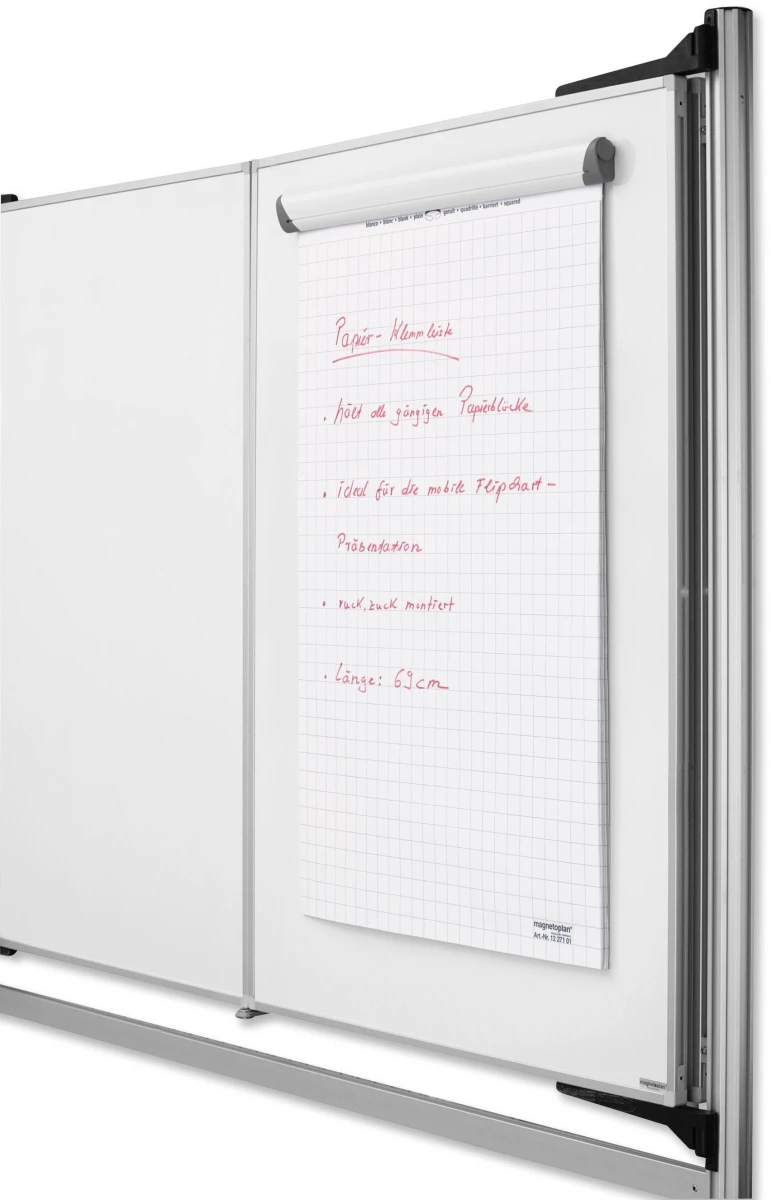 blanco • blanc • blank • plain geruit • quadrillé • karriert • squared
Papier-Klemmleiste
• hält alle gängigen Papierblöcke
• ideal für die mobile Flipchart-
Präsentation
• ruck, zuck montiert
• Länge: 69cm
magnetoplan®
Art.-Nr. 12 271 01
magnetoplan